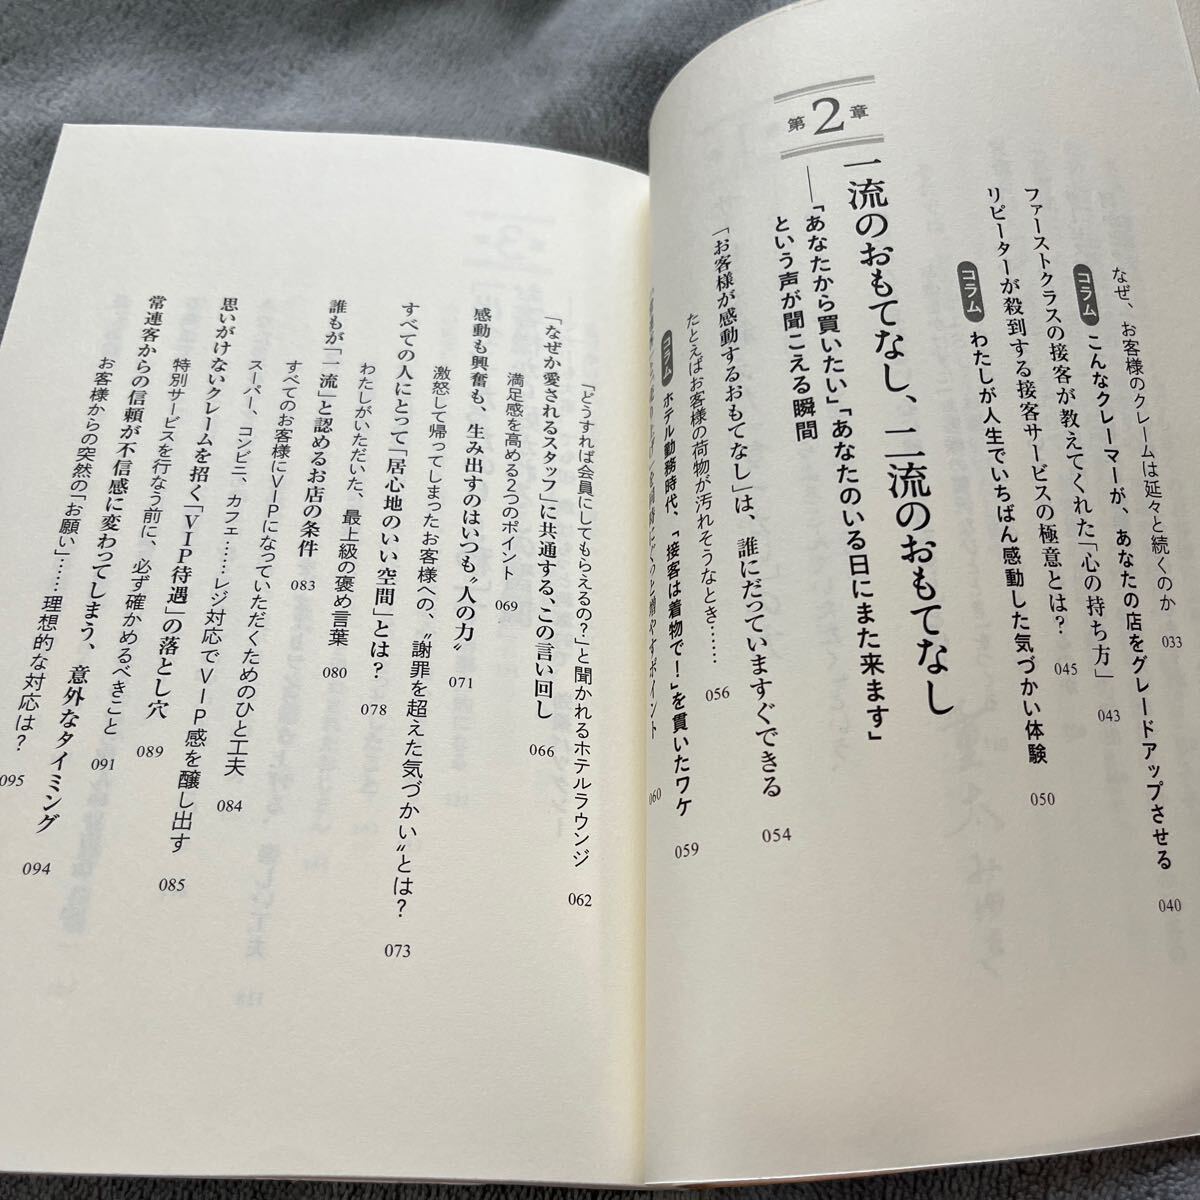 なぜ、お客様のクレームは延々と続くのか 033
コラム こんなクレーマーが、あなたの店をグレードアップさせる 040
ファーストクラスの接客が教えてくれた「心の持ち方」 043
リピーターが殺到する接客サービスの極意とは? 045
コラム わたしが人生でいちばん感動した気づかい体験 050
第2章
一流のおもてなし、二流のおもてなし
——「あなたから買いたい」「あなたのいる日にまた来ます」
という声が聞こえる瞬間
「お客様が感動するおもてなし」は、誰にだっていますぐできる 054
たとえばお客様の荷物が汚れそうなとき…… 056
コラム ホテル勤務時代、「接客は着物で!」を貫いたワケ 059
ポイント 060
「どうすれば会員にしてもらえるの?」と聞かれるホテルラウンジ 062
「なぜか愛されるスタッフ」に共通する、この言い回し 066
満足感を高める2つのポイント 069
感動も興奮も、生み出すのはいつも〝人の力〟 071
激怒して帰ってしまったお客様への、〝謝罪を超えた気づかい〟とは? 073
すべての人にとって「居心地のいい空間」とは? 078
わたしがいただいた、最上級の褒め言葉 080
誰もが「一流」と認めるお店の条件 083
すべてのお客様にVIPになっていただくためのひと工夫 084
スーパー、コンビニ、カフェ……レジ対応でVIP感を醸し出す 085
思いがけないクレームを招く「VIP待遇」の落とし穴 089
特別サービスを行なう前に、必ず確かめるべきこと 091
常連客からの信頼が不信感に変わってしまう、意外なタイミング 094
お客様からの突然の「お願い」……理想的な対応は? 095